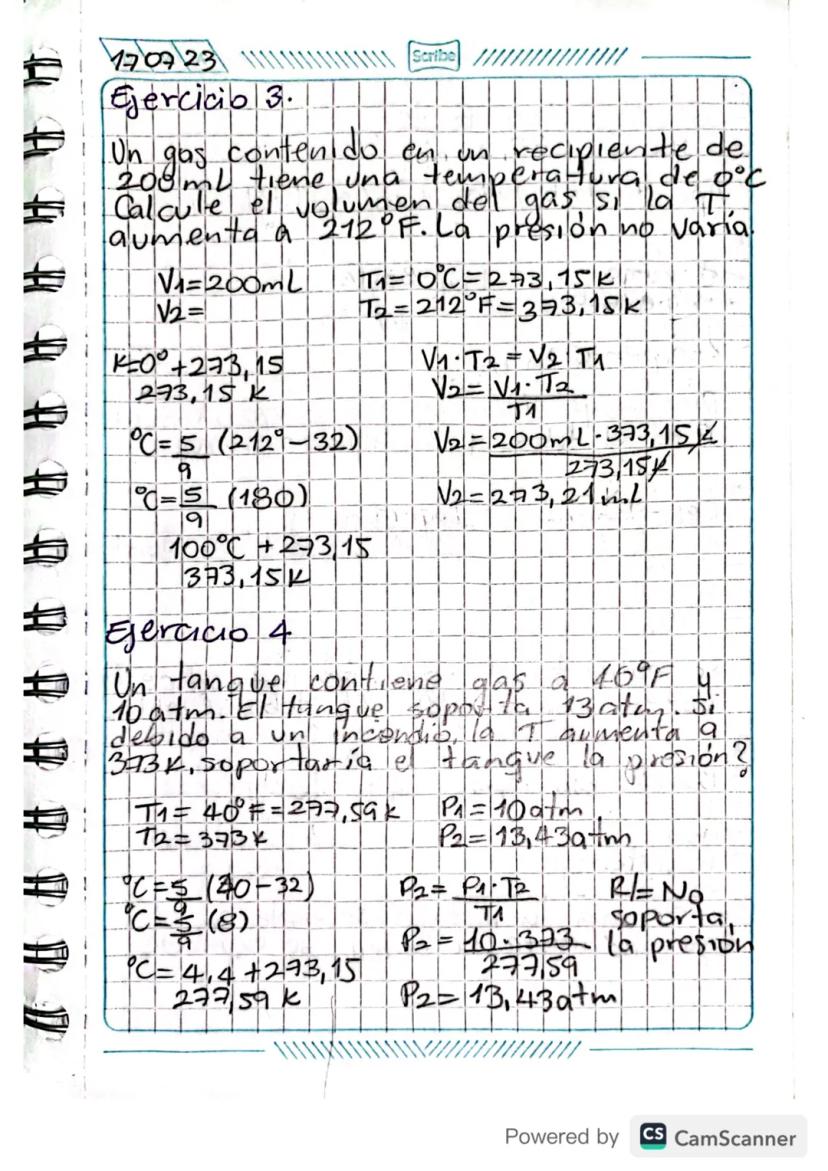 17 07 23
Scribe
Ejercicio 3.
Un gas contenido en un recipiente de
200 mL tiene una temperatura de 0°C
Calcule el volumen del gas si la T
aumenta a 212°F. La presión no varía.
V1=200mL T1= 0°C=273,15K
V2= T2=212°F=373,15K
K=0°+273,15
273,15 K
°C=5/9 (212°-32)
°C=5/9 (180)
100°C +273,15
373,15K
V1·T2=V2 T1
V2=V1·T2/T1
V2=200mL·373,15K/273,15K
V2=273,21mL
Ejercicio 4
Un tanque contiene gas a 40°F y
10 atm. El tanque soporta 13 atm. Si
debido a un incendio, la T aumenta a
373K, soportaría el tanque la presión?
T1= 40°F=277,59K P1=10atm
T2=373K P2=13,43atm
°C=5/9 (40-32)
°C=5/9 (8)
°C=4,4+273,15
277,59 K
P2= P1·T2/T1
P2=10·373/277,59
P2=13,43atm
R/= No
soporta
la presión
Powered by CS CamScanner